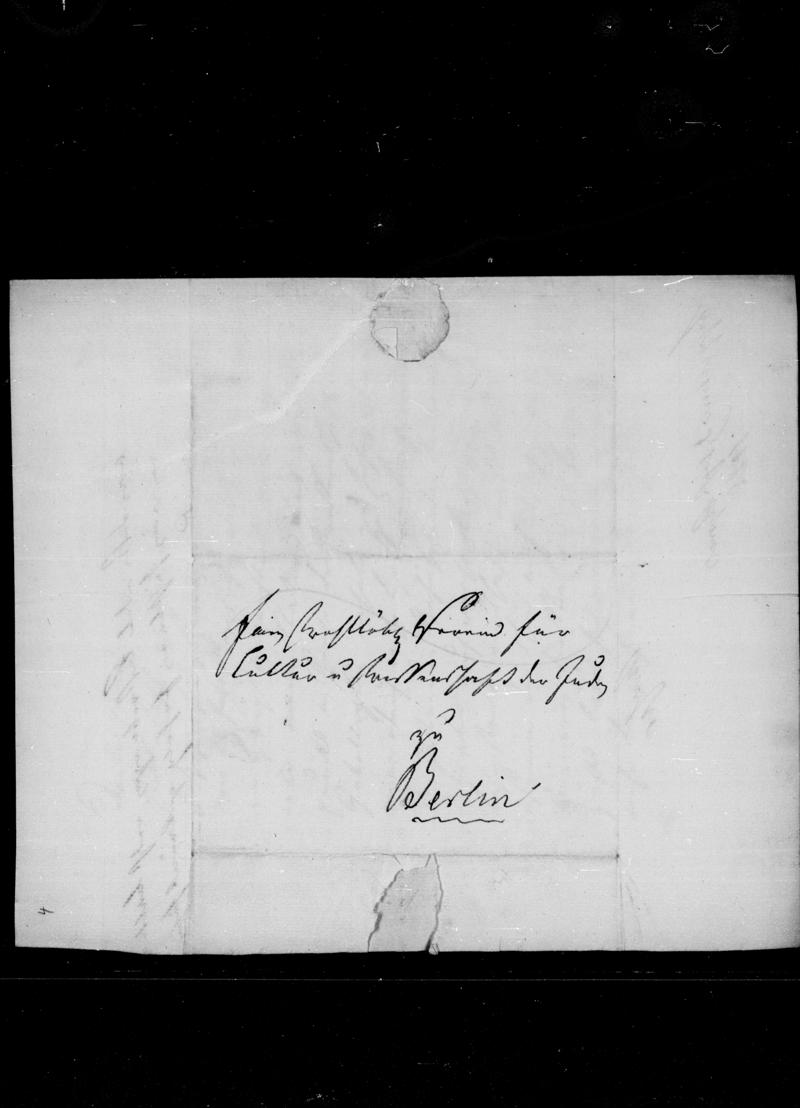 Einen Wohllöbl Verein für
Cultur u Wissenschaft der Juden
zu
Berlin
4